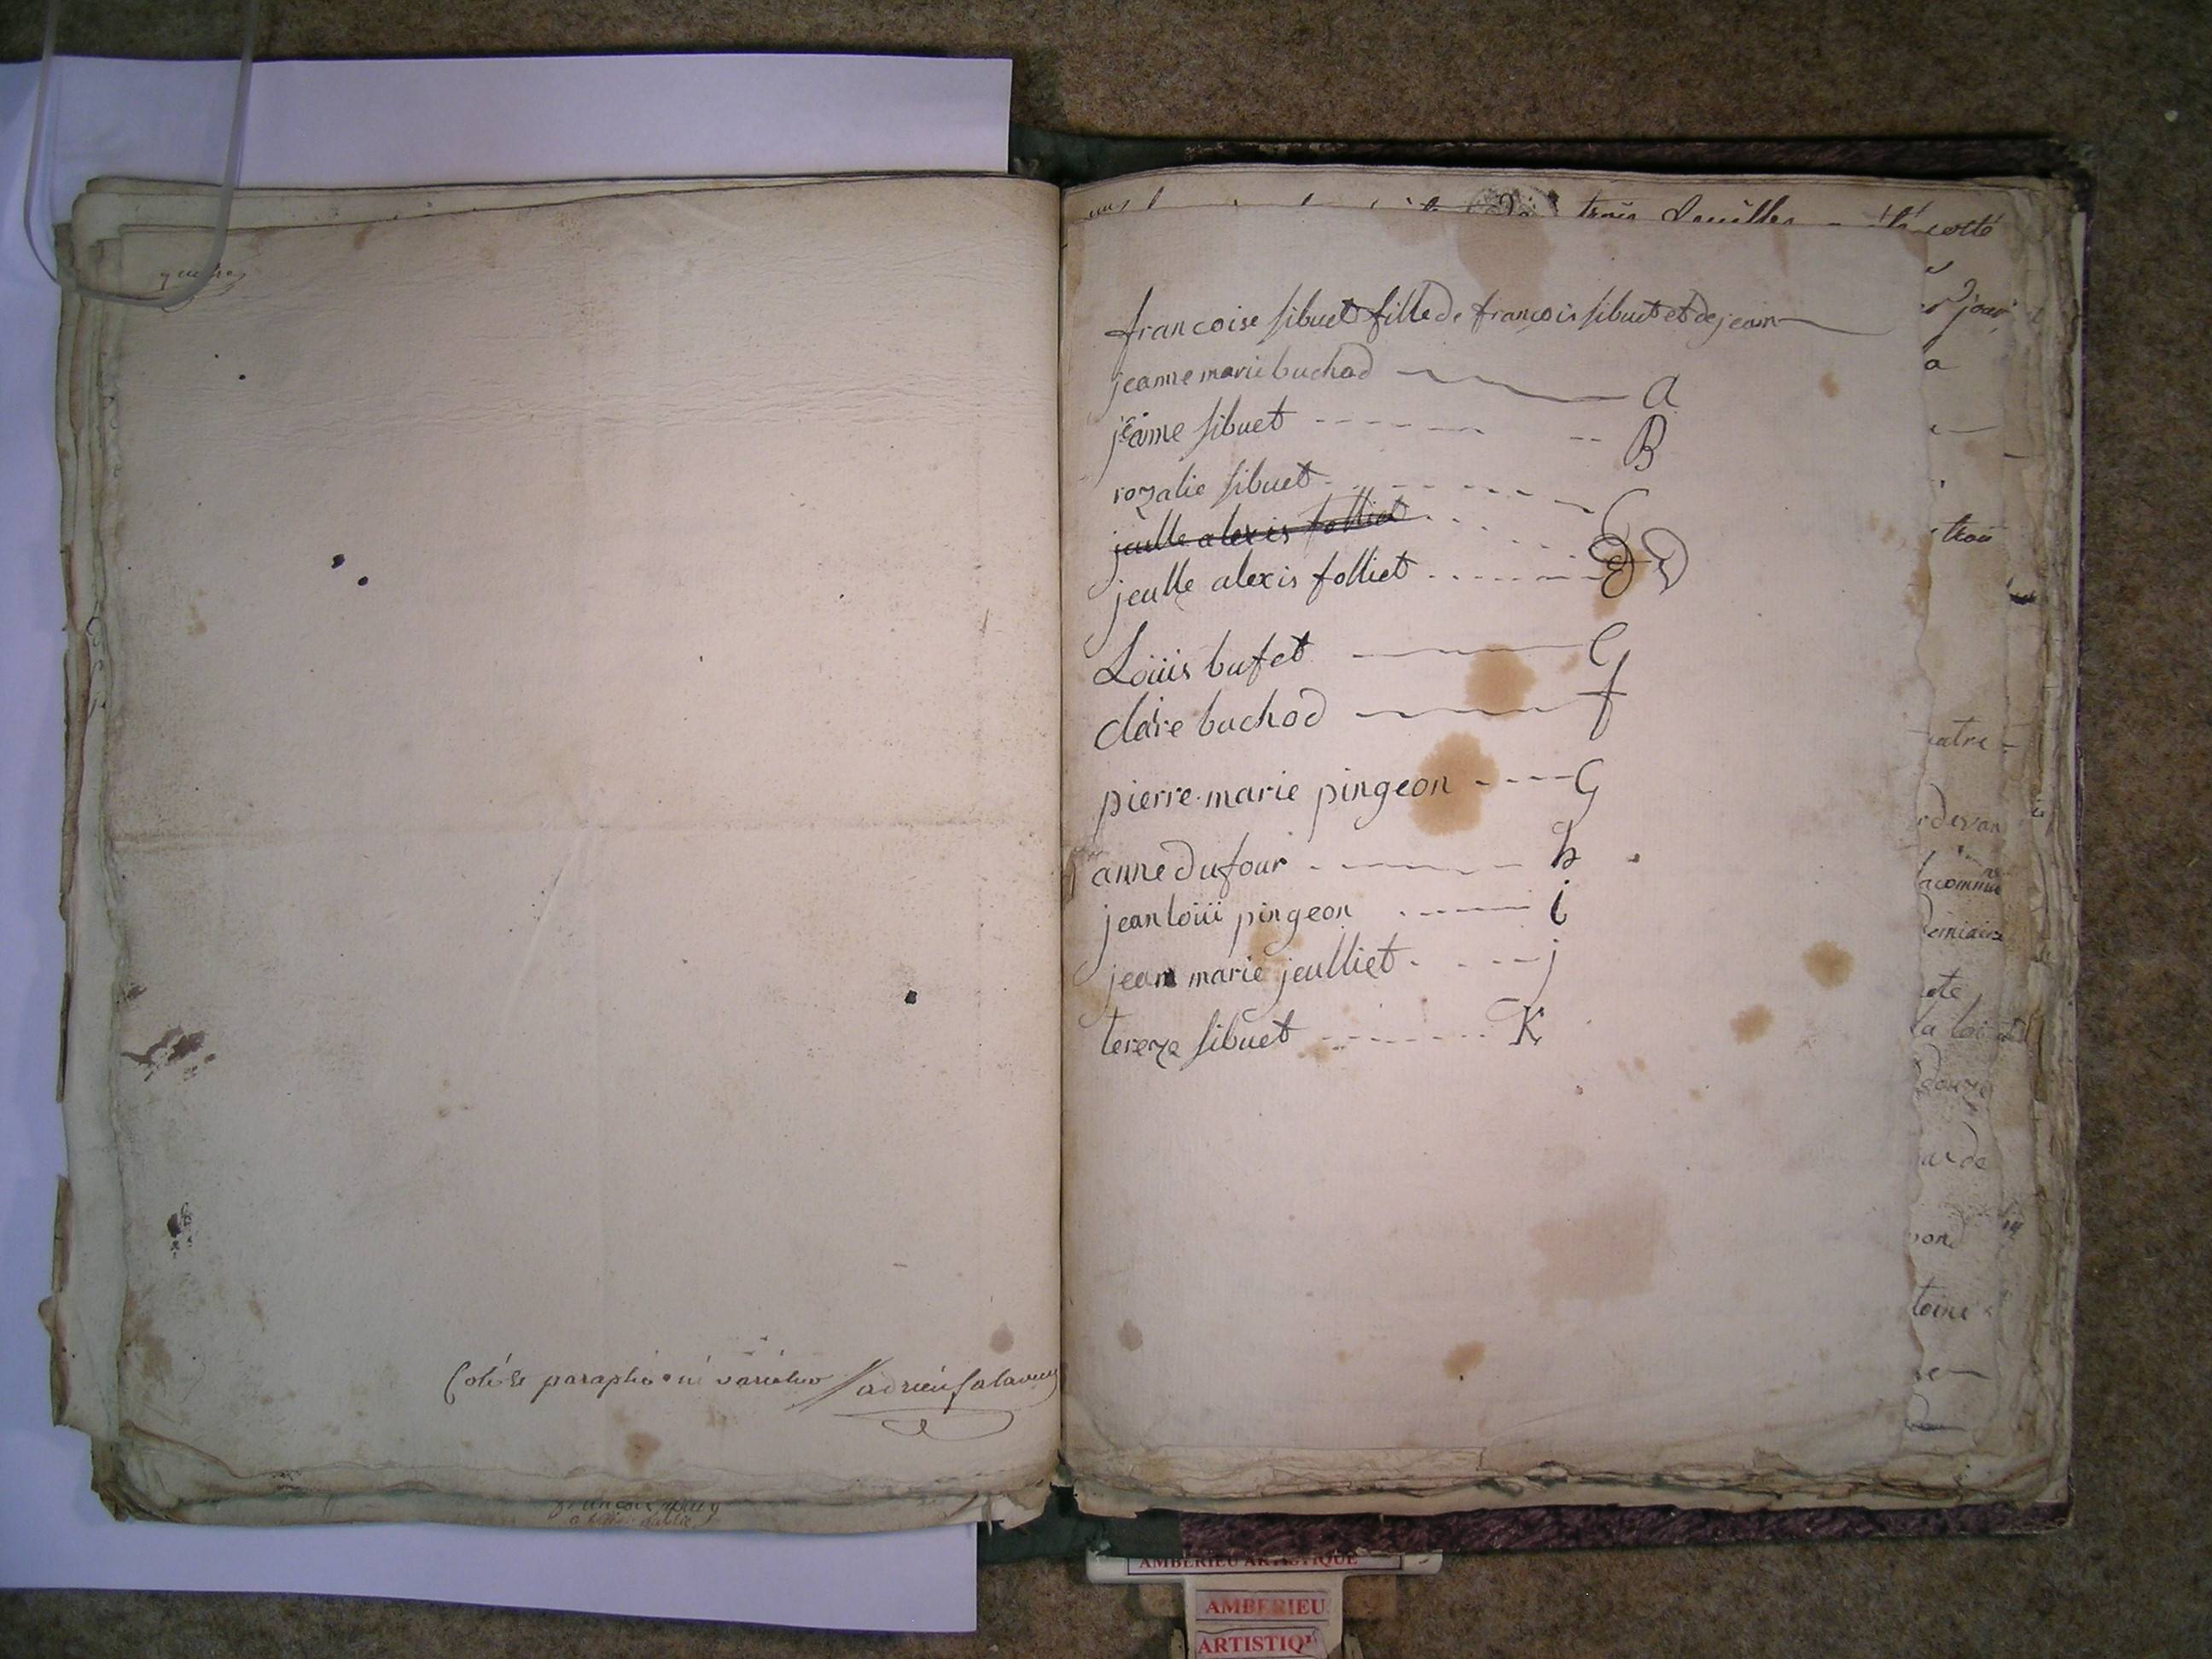 quatre
Coté & paraphé ne varietur
francoise sibuet fille de francois sibuet et de jean
jeanne marie buchod a
jeanne sibuet B
rozalie sibuet C
jeulle alexis folliet
jeulle alexis folliet D
Loüis bufet e
claire buchod f
pierre marie pingeon G
anne dufour h
jean loüii pingeon i
jean marie jeulliet j
tereze sibuet K
trois feuilles coté
jour
a
trois
la loi
douze
AMBERIEU ARTISTIQUE
AMBERIEU
ARTISTIQU